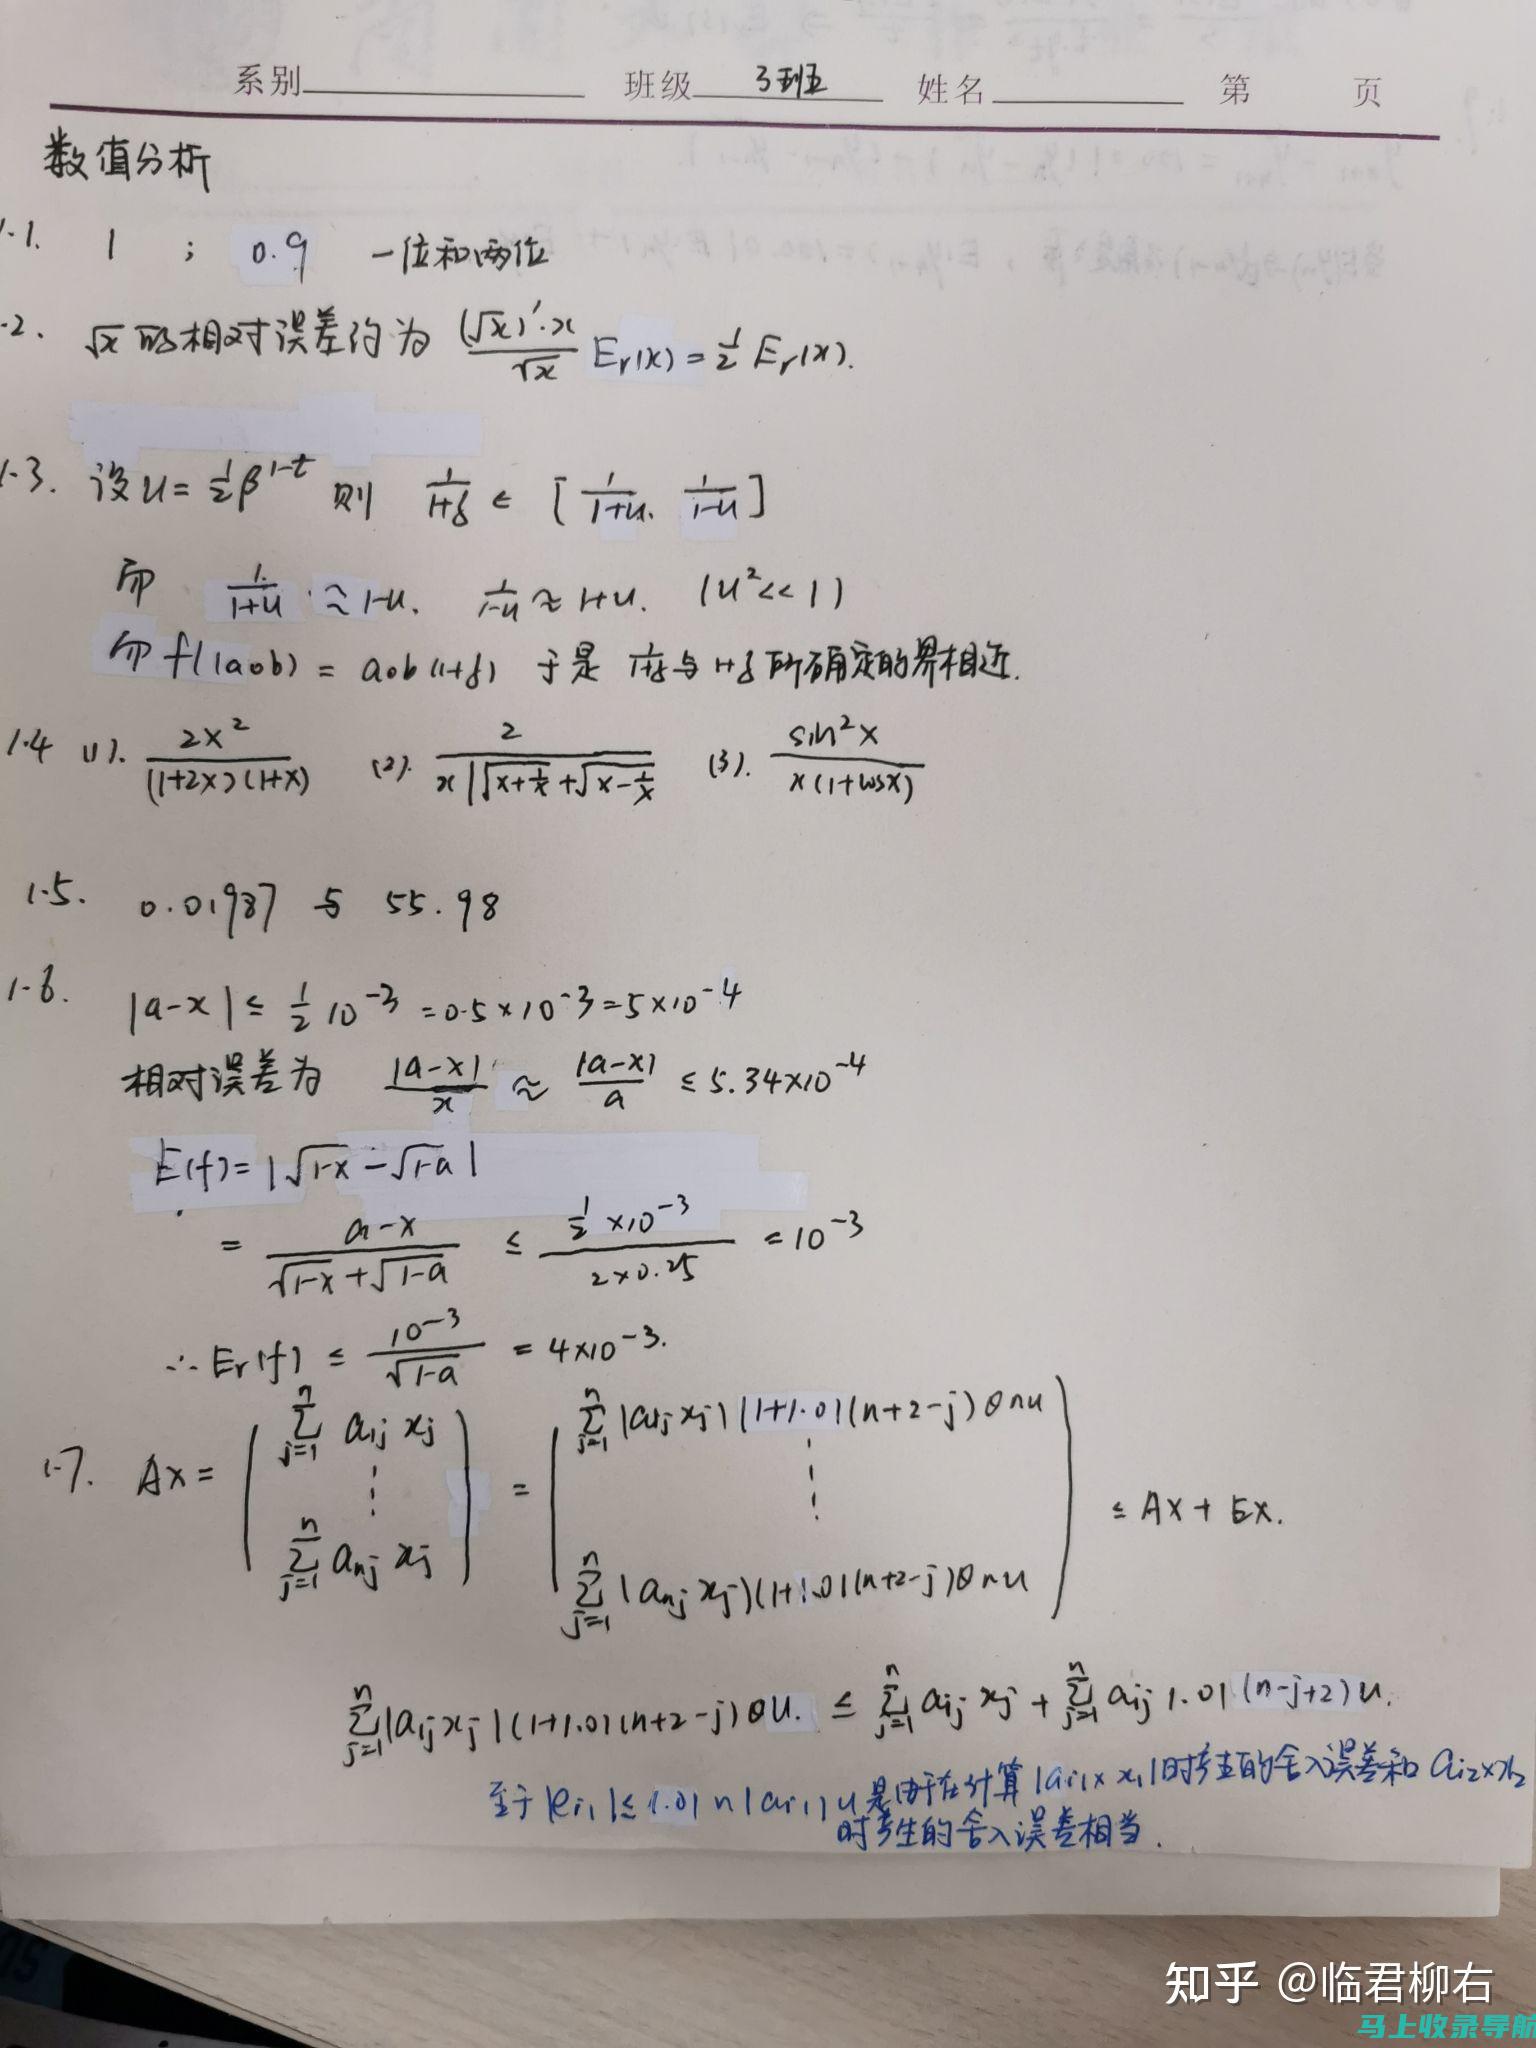 系别 班级 3班 姓名 第 页
数值分析
1.1. 1 ; 0.9 一位和两位
.2. √x 的相对误差约为 (√x)'·x / √x Er(x) = 1/2 Er(x).
1.3. 设 u = 1/2 β^(1-t) 则 1/(1+δ) ∈ [ 1/(1+u), 1/(1-u) ]
而 1/(1+u) ≈ 1-u. 1/(1-u) ≈ 1+u. (u² << 1)
而 f((aob) = aob(1+δ) 于是 1/(1+δ) 与 1+δ 所确定的界相近.
1.4 (1). 2x² / (1+2x)(1+x) (2). 2 / x(√(x+1/x) + √(x-1/x) (3). sin²x / x(1+cosx)
1.5. 0.01987 与 55.98
1.6. |a-x| ≤ 1/2 10^-3 = 0.5×10^-3 = 5×10^-4
相对误差为 |a-x|/x ≈ |a-x|/a ≤ 5.34×10^-4
E(f) = |√(1-x) - √(1-a)|
= a-x / (√(1-x) + √(1-a)) ≤ 1/2 ×10^-3 / 2×0.25 = 10^-3
∴ Er(f) ≤ 10^-3 / √(1-a) = 4×10^-3.
1.7. Ax = ( Σ_{j=1}^{n} a_{1j} x_j ⋮ Σ_{j=1}^{n} a_{nj} x_j ) = ( Σ_{j=1}^{n} |a_{1j} x_j| (1+1.01(n+2-j)θnu ⋮ Σ_{j=1}^{n} (a_{nj} x_j)(1+1.01(n+2-j)θnu ) ≤ Ax + Ex.
Σ_{j=1}^{n} |a_{ij} x_j| (1+1.01(n+2-j)θu. ≤ Σ_{j=1}^{n} a_{ij} x_j + Σ_{j=1}^{n} a_{ij} 1.01(n-j+2)u.
至于 |e_{i1}| ≤ 1.01 n |a_{i1}| u 是由于在计算 |a_{i1} × x_1| 时产生的舍入误差和 a_{i2}×x_2
时产生的舍入误差相当.
知乎 @临君柳右
马上收录导航